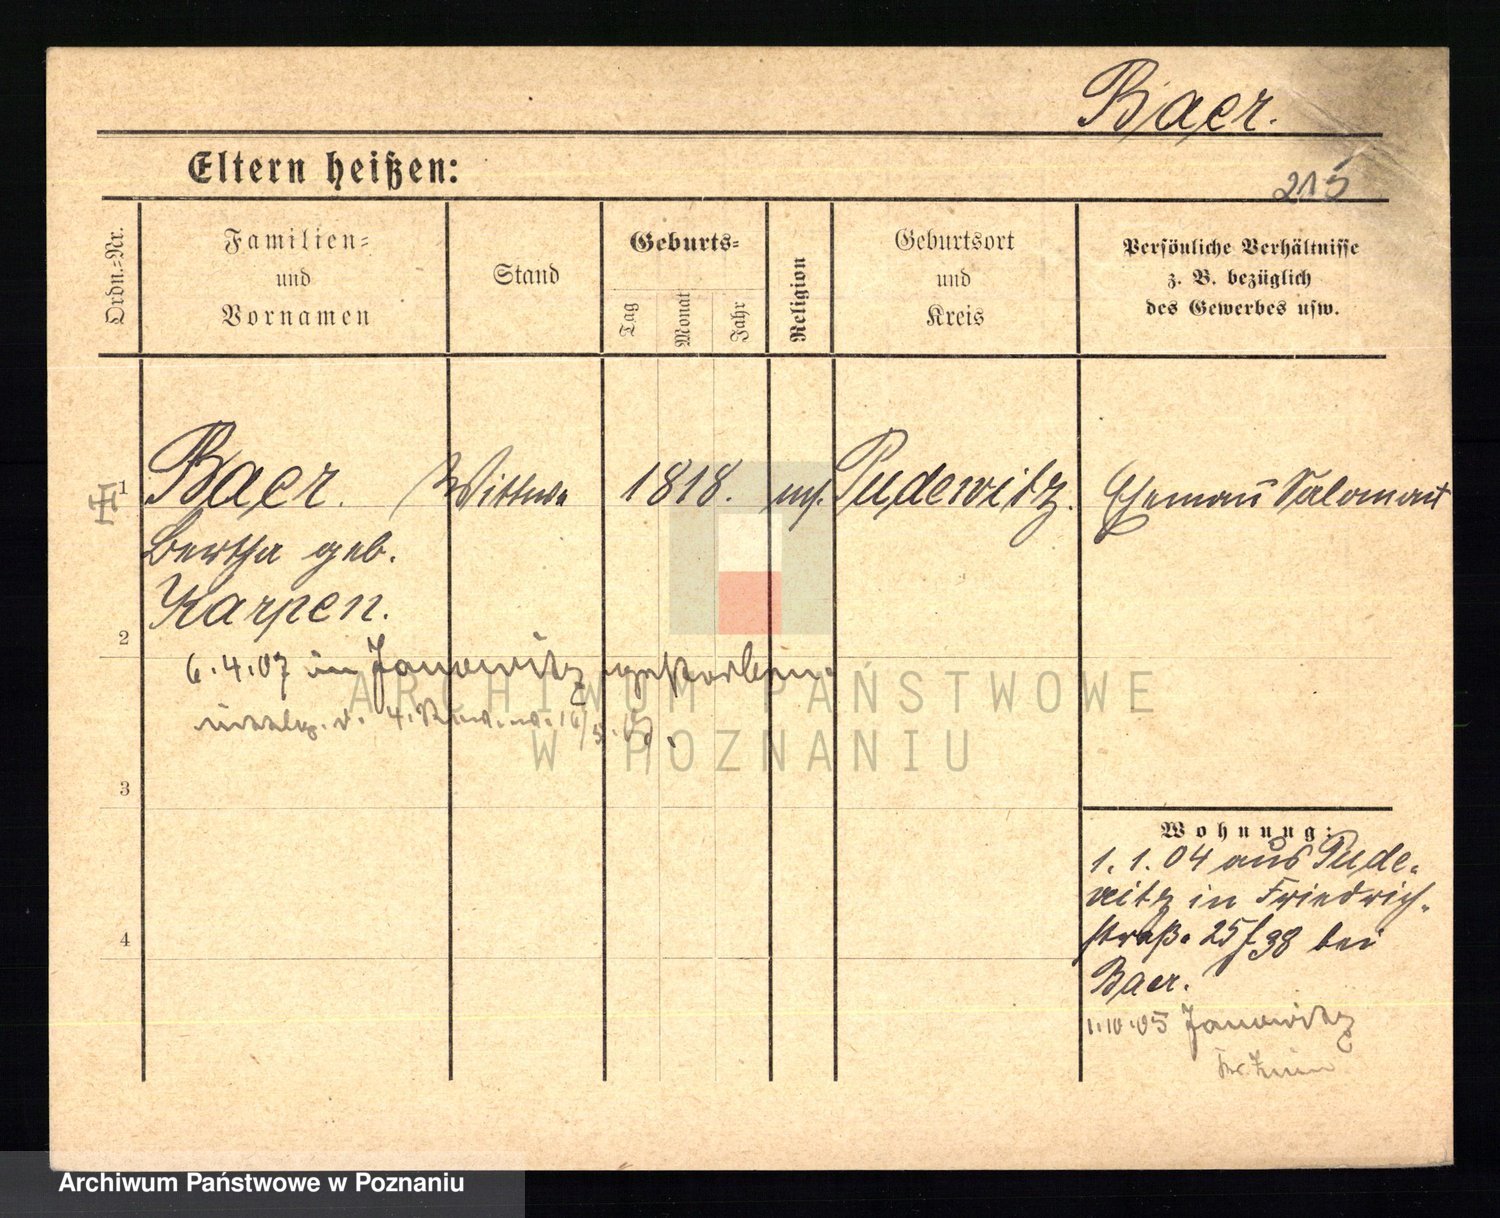 Baer.
Eltern heißen:
215
Ordn.-Nr.
Familien-
und
Vornamen
Stand
Geburts-
Tag
Monat
Jahr
Religion
Geburtsort
und
Kreis
Persönliche Verhältnisse
z. B. bezüglich
des Gewerbes usw.
1
Baer. Wittwe 1818. mos. Pudewitz. Ehemañ Salomon
Bertha geb.
Karpen.
2
6.4.07 in Janowitz gestorben.
3
Wohnung:
1.1.04 aus Pude-
witz in Friedrich-
straße 25/38 bei
Baer.
4
1.10.05 Janowitz
Kr. Znin
ARCHIWUM PAŃSTWOWE
W POZNANIU
Archiwum Państwowe w Poznaniu